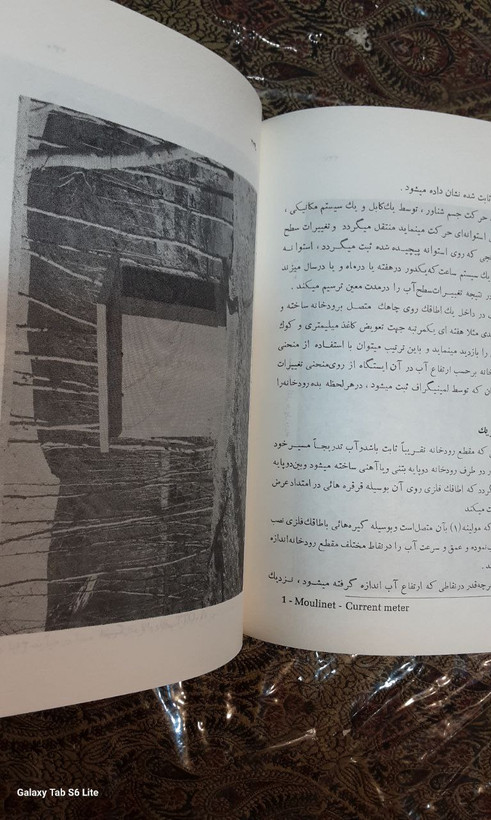 ثابت شده نشان داده میشود .
حرکت جسم شناور ، توسط یك‌کابل و یك سیستم مکانیکی ،
استوانه‌ای حرکت مینماید منتقل میگردد و تغییرات سطح
که روی استوانه پیچیده شده ثبت میگردد ، استوانه
یك سیستم ساعت که‌یکدور درهفته یا درماه و یا درسال میزند
نتیجه تغییرات‌سطح‌آب را درمدت معین ترسیم میکند .
در داخل یك اطاقك روی چاهك متصل برودخانه ساخته و
مثلا هفته ای یکمرتبه جهت تعویض کاغذ میلیمتری و کوك
را بازدید مینماید و باین ترتیب میتوان با استفاده از منحنی
برحسب ارتفاع آب در آن ایستگاه از روی‌منحنی تغییرات
که توسط لمینیگراف ثبت میشود ، درهرلحظه بده‌رودخانه‌را
که مقطع رودخانه تقریباً ثابت باشدوآب تدریجاً مسیرخود
در دو طرف رودخانه دوپایه بتنی ویاآهنی ساخته میشود وبین‌دوپایه
که اطاقك فلزی روی آن بوسیله قرقره هائی در امتدادعرض
میکند
که مولینه(۱) بآن متصل‌است وبوسیله گیره‌هائی باطاقك‌فلزی نصب
نموده و عمق و سرعت آب را درنقاط مختلف مقطع رودخانه‌اندازه
هرچه‌قدر درنقاطی که ارتفاع آب اندازه گرفته میشود ، نزدیك
1 - Moulinet - Current meter
Galaxy Tab S6 Lite